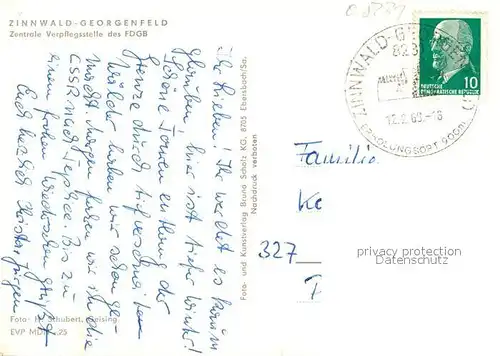 ZINNWALD-GEORGENFELD
Zentrale Verpflegsstelle des FDGB
Ihr Lieben! Ihr werdet es kaum
glauben, hier ist tiefer Winter!
Schöne Touren entlang der
Grenze durch tiefverschneiten
Wälder haben wir schon ge-
macht. Morgen fahren wir in die
CSSR nach Teplice. Bis zu
einem frohen Wiedersehen grüßt
Euch herzlich
Foto: H. Schubert, Geising
EVP MDN 0,25
Foto- und Kunstverlag Bruno Scholz KG, 8705 Ebersbach/Sa.
Nachdruck verboten
ZINNWALD-GEORGENFELD
10
DEUTSCHE
DEMOKRATISCHE REPUBLIK
ERHOLUNGSORT 900m
Familie
327
privacy protection
Datenschutz